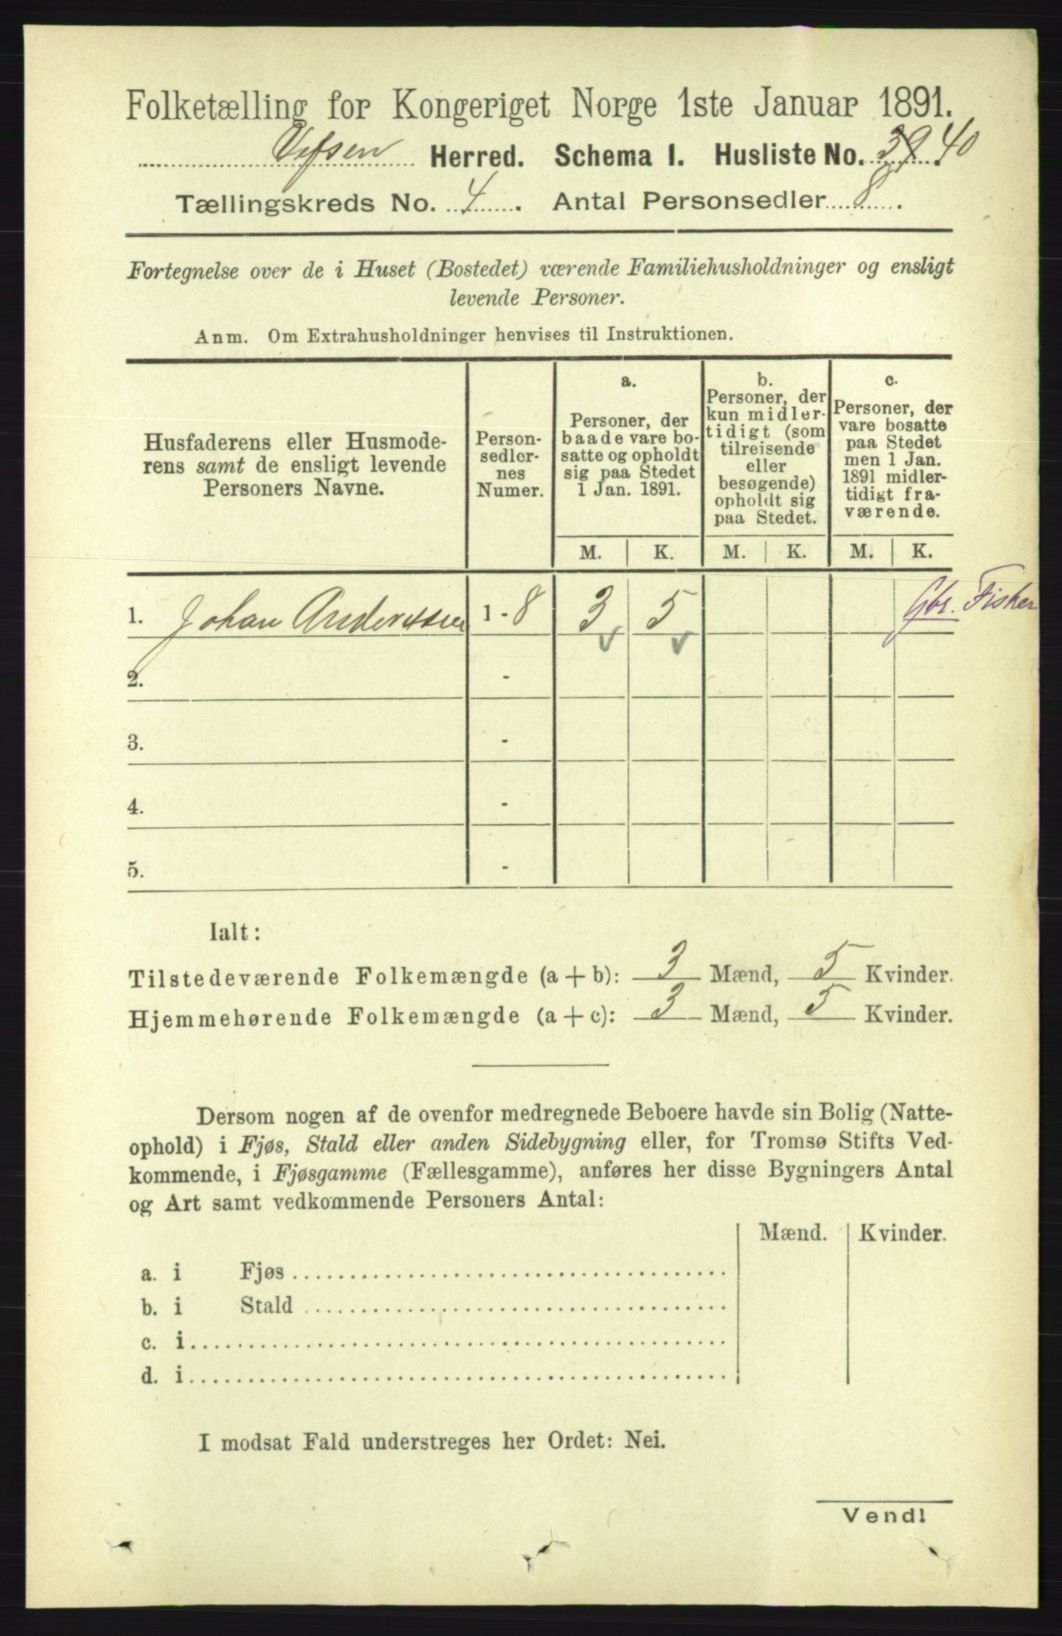 Folketælling for Kongeriget Norge 1ste Januar 1891.
Vefsen Herred. Schema I. Husliste No. 39 40
Tællingskreds No. 4. Antal Personsedler 8.
Fortegnelse over de i Huset (Bostedet) værende Familiehusholdninger og ensligt
levende Personer.
Anm. Om Extrahusholdninger henvises til Instruktionen.
Husfaderens eller Husmode-
rens samt de ensligt levende
Personers Navne.
Person-
sedler-
nes
Numer.
a.
Personer, der
baade vare bo-
satte og opholdt
sig paa Stedet
1 Jan. 1891.
b.
Personer, der
kun midler-
tidigt (som
tilreisende
eller
besøgende)
opholdt sig
paa Stedet.
c.
Personer, der
vare bosatte
paa Stedet
men 1 Jan.
1891 midler-
tidigt fra-
værende.
M. K. M. K. M. K.
1. Johan Anderssen 1-8 3 5 Gbr. Fisker
2. -
3. -
4. -
5. -
Ialt:
Tilstedeværende Folkemængde (a + b): 3 Mænd, 5 Kvinder.
Hjemmehørende Folkemængde (a + c): 3 Mænd, 5 Kvinder.
Dersom nogen af de ovenfor medregnede Beboere havde sin Bolig (Natte-
ophold) i Fjøs, Stald eller anden Sidebygning eller, for Tromsø Stifts Ved-
kommende, i Fjøsgamme (Fællesgamme), anføres her disse Bygningers Antal
og Art samt vedkommende Personers Antal:
Mænd. Kvinder.
a. i Fjøs
b. i Stald
c. i
d. i
I modsat Fald understreges her Ordet: Nei.
Vend!